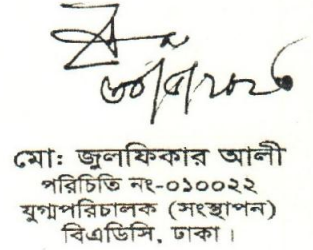 মো: জুলফিকার আলী
পরিচিতি নং-০১০০২২
যুগ্মপরিচালক (সংস্থাপন)
বিএডিসি, ঢাকা।